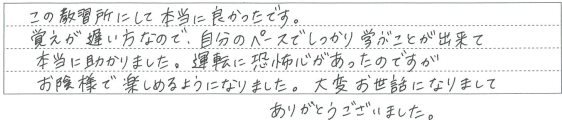 この教習所にして本当に良かったです。
覚えが遅い方なので、自分のペースでしっかり学ぶことが出来て
本当に助かりました。運転に恐怖心があったのですが
お陰様で楽しめるようになりました。大変お世話になりまして
ありがとうございました。